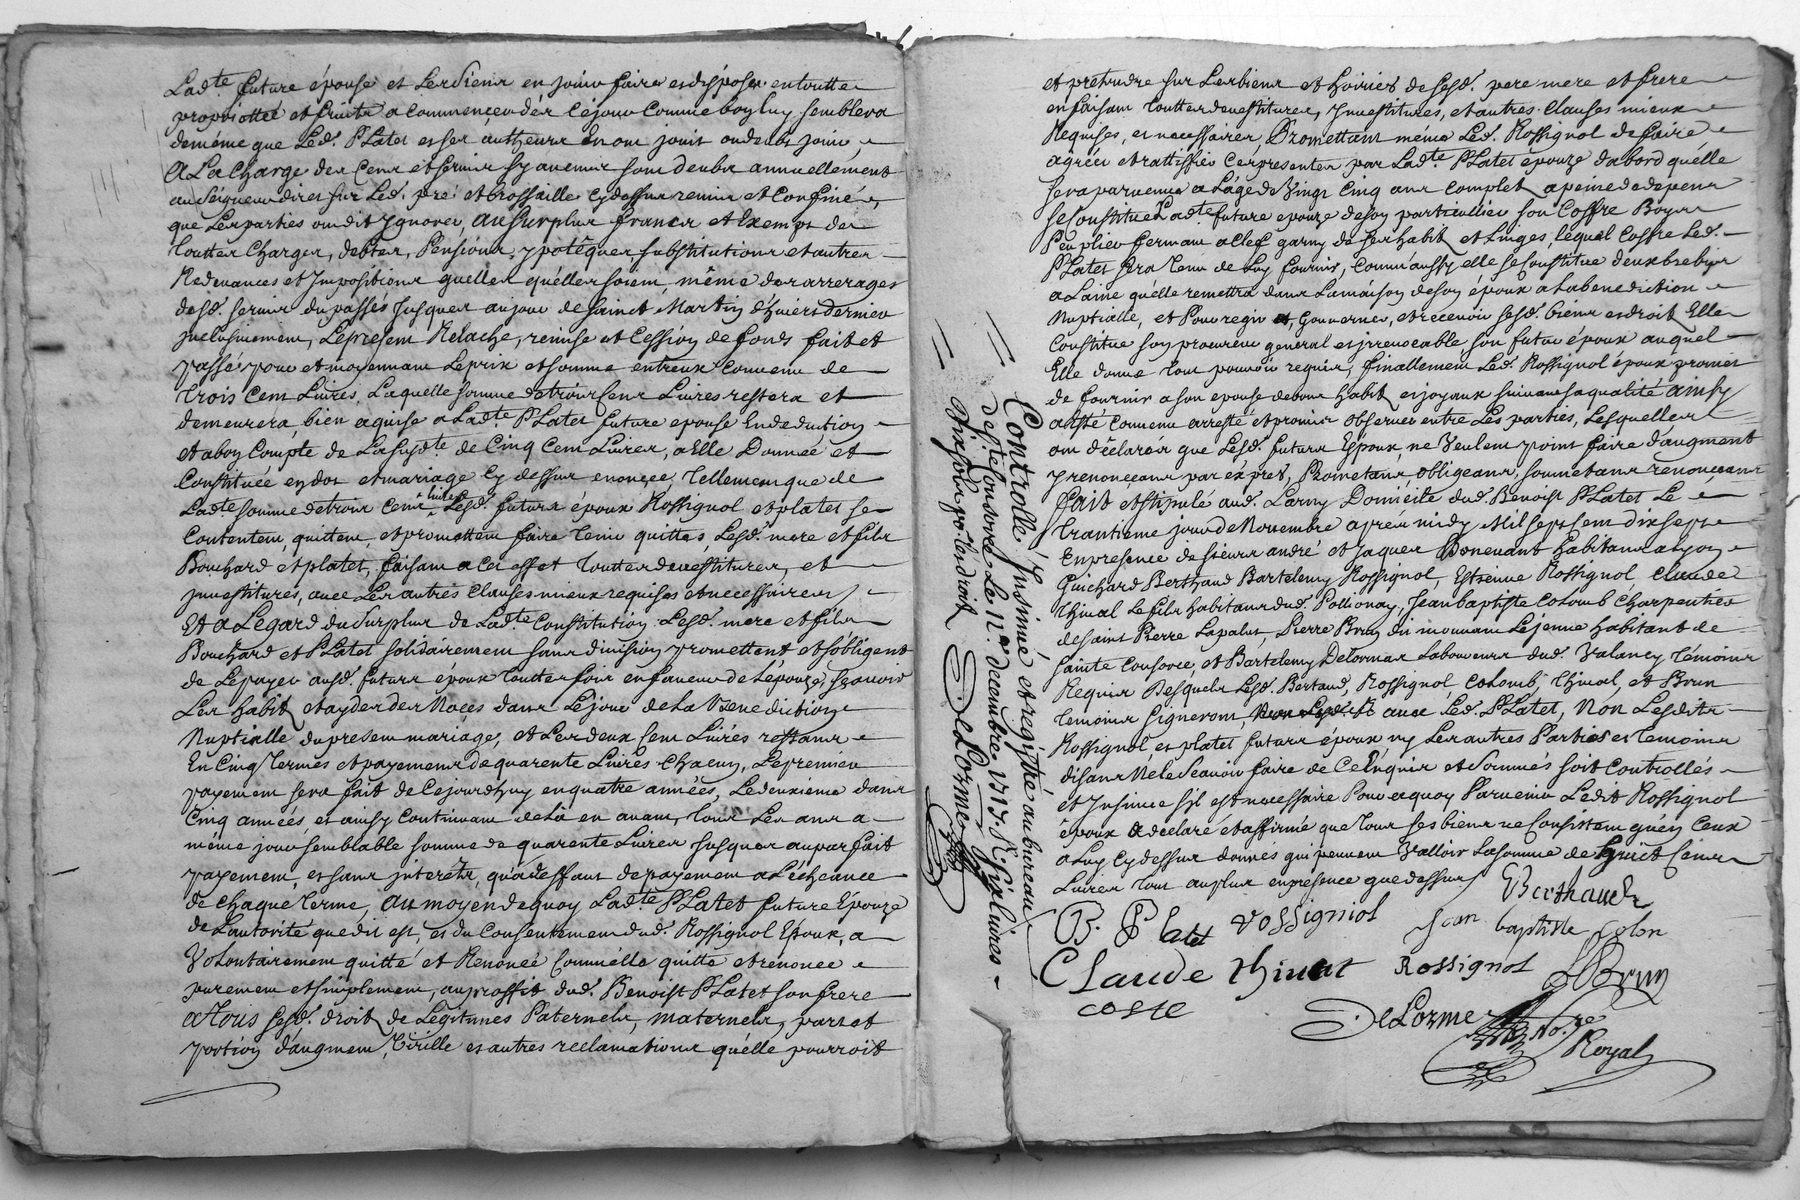 Lad.te future épouse et Les siens en jouir faire et disposer en toutte
proprietté et fruits a commencer dés Cejour Comme bon luy semblera
de méme que Led. Platet et ses autheurs En ont joui ou deub jouir,
A La Charge des Cens et servis sy aucuns sont deubs annuellement
au Seigneur direct sur Led. pré et brossaille cydessus remis et Confiné
que Les parties ont dit Ignorer, au surplus francs et Exempt des
touttes Charges, debtes, Pensions, ypotéques substitutions et autres
Redevances et Impositions quelles quélles soient, méme des arrerages
desd. servis du passés Jusques au jour de saint Martin d'hivert dernier
Inclusivement, Léprésent Relache, remise et Cession de fonds fait et
passé pour et moyennant Le prix et somme entreux Convenu de
trois Cent Livres, Laquelle somme de trois Cens Livres restera et
demeurera, bien aquise a Lad.te Platet future épouse En deduction
et a bon Compte de La susd.te de Cinq Cent Livres, a Elle Donnée et
Constituée en dot et mariage Cy dessus enoncée, tellement que de
Lad.te somme de trois Cens livres Lesd. futurs époux Rossignol et platet se
Contentent, quittent, et promettent faire tenir quittes, Lesd. mere et fils
Bouchard et platet, faisant a Cet effet touttes devestitures, et
Investitures, avec Les autrés Clauses mieux requises et necessaires
Et a Légard du Surplus de Lad.te Constitution Lesd. mere et fils
Bouchard et Platet solidairement sans division promettent et s'obligent
de Le payer ausd. futurs époux touttes fois en faveur de Lépouze, sçavoir
Les habits et aydes des Noces dans Le jour de La Benediction
Nuptialle du present mariage, et Les deux Cent Livrés restans
En Cinq termes et payemens de quarente Livres chacun, Le premier
payement sera fait de Cejourdhuy en quatre années, Le deuxieme dans
Cinq années, et ainsy Continuant de La en avant, tous Les ans a
méme jour semblable somme de quarente Livres Jusques au parfait
payement, et sans interéts, qu'a deffaut de payement a L'écheance
de chaque terme, au moyen de quoy Lad.te Platet future Epouze
de L'autorité que dit est, et du Consentement dud. Rossignol Epoux, a
Volontairement quitté et Renoncé Comme elle quitte et renonce
purement et simplement, au proffit dud. Benoist Platet son frere
a tous sesd. droits de Légitimes Paternels, maternels, part et
portion daugment, Virille et autres reclamations quélle pourroit
et pretendre sur Les biens et hoiries de sesd. pere mere et frere
en faisant touttes devestitures, Investitures, et autres Clauses mieux
Requises, et necessaires, Promettant méme Led. Rossignol de faire
agréer et rattiffier Ces presentes par Lad.te Platet épouze dabord quélle
sera parvenue a Lâge de Vingt Cinq ans Complets a peine de depens
se Constitue Lad.te future epouze de son particullier son Coffre Boys
Peuplier fermant a Clef garny de ses habits et Linges, lequel Coffre Led.
Platet sera tenu de Luy fournir, Comme aussy elle se Constitue deux brebys
a Laine quélle remettra dans La maison de son époux a La benediction
Nuptialle, et Pour regir et, Gouverner, et recevoir sesd. biens et droits Elle
Constitue son procureur general et irrevocable son futur époux auquel
Elle donne tout pouvoir requis, finallement Led. Rossignol époux promet
de fournir a son epouse de bons habits et joyaux suivant sa qualité ainsy
a été Convenu arresté et promis observer entre Les parties, Lesquelles
ont déclarés que Lesd. futurs Epoux ne Veulent point faire d'augment
y renonçans par exprés, Promettans, obligeans, soumettans renonçans
fait et stipulé aud. Larny Domicile dud. Benoist Platet Le
trantieme jour de Novembre apréu midy Mil sept Cent dix sept
En presence de sieurs andré et Jaques Bonevant habitans a Lyon
Guichard Berthaud Bartelemy Rossignol, Estienne Rossignol Claude
thival Le fils habitans dud. Pollionay, Jean baptiste Colomb Charpentier
de saint Pierre Lapalus, Pierre Brun dit mouvant Le jeune habitant de
sainte Consorce, et Bartelemy Delormas Laboureurs dud. Valancy témoins
Requis Desquels Lesd. Bertaud, Rossignol Colomb, thival, et Brun
temoins Signeront, avec Led. Platet, Non Lesdits
Rossignol et platet futurs époux ny Les autres Parties et temoins
disans Ne Le Scavoir faire de Ce Enquis et Sommés soit Controllés
et Insinué s'il est necessaire Pour a quoy Parvenir Ledit Rossignol
époux a declaré et affirmé que tous ses biens ne Consistent qu'en Ceux
a Luy Cy dessus donnés qui peuvent Valloir La somme de huict Cens
Livres tout au plus en presence que dessus
Berthaud
B. Platet Vossigniol Jean baptiste Colon
Claude thivat Rossignol PBrun
coste
DeLorme No.re
Royal
Controlle Insinué et registré au bureau
de s.te Consorce Le 12.e decembre 1717. R. six livres
dix sols po. les droits
DeLorme